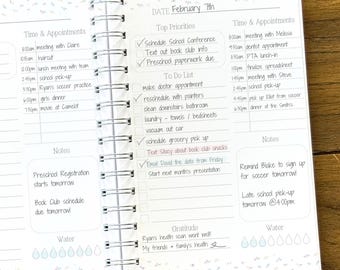 Time & Appointments
meeting with Claire
haircut
lunch meeting with team
school pick-up
Ryan's soccer practice
girls dinner
movie at Camelot
Notes
Preschool Registration
starts tomorrow!
Book Club schedule
due tomorrow!
Water
DATE February 7th
Top Priorities
Schedule School Conference
Text out book club info
Preschool paperwork due
To Do List
make doctor appointment
reschedule with painters
clean downstairs bathroom
laundry - towels / bedsheets
vacuum out car
schedule grocery pick up
Text Stacy about book club snacks
Email David the date from Friday
Start next month's presentation
Gratitude
Ryan's health scan went well!
My friends + family's health
Time & Appointments
meeting with Melissa
dentist appointment
PTA lunch-in
meeting with Steve
school pick-up
pick up Elliot from soccer
dinner at the Smiths
Notes
Remind Blake to sign up
for soccer tomorrow!
Late school pick-up
tomorrow @4:00pm
Water